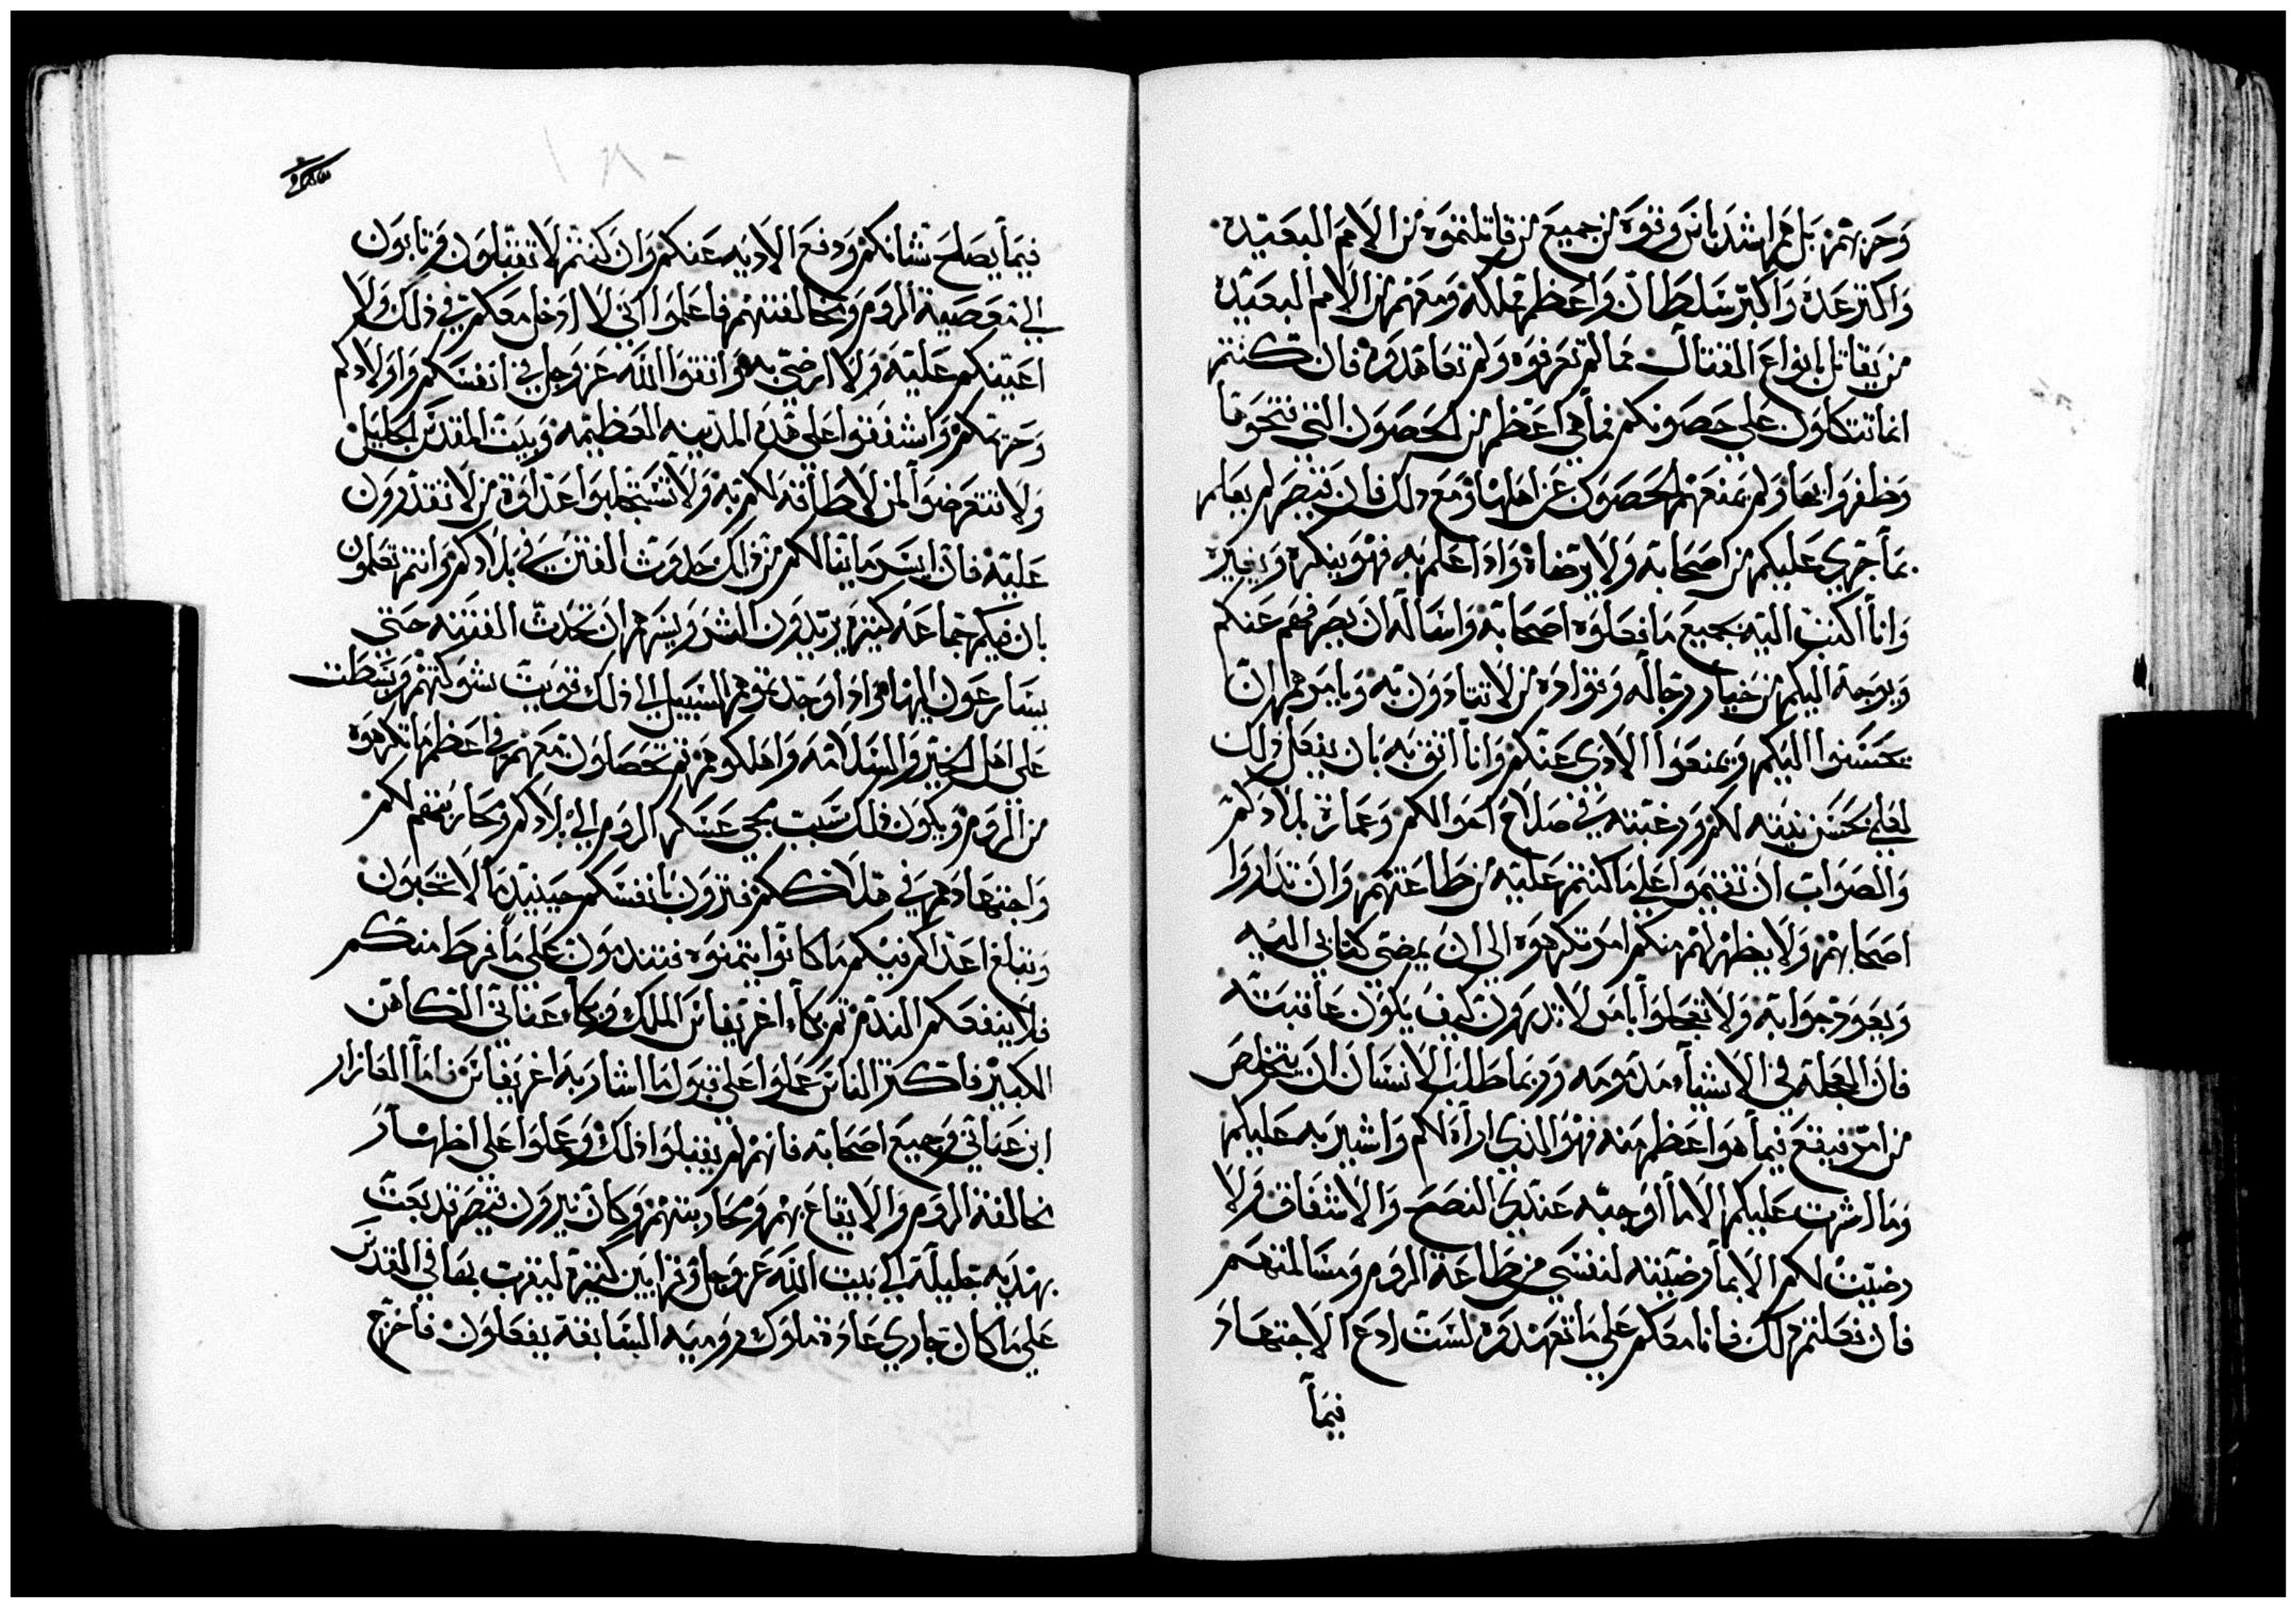 وحربهم بل هم اشد باس وقوه من جميع من قاتلتموه من الامم البعيده
واكثر عدة واكبر سلطان واعظم مملكه ومعهم من الامم البعيده
من يقاتل بانواع القتال مما لم تعرفوه ولم تعاهدوه فان كنتم
انما تتكلون علي حصونكم فما هي اعظم من الحصون التي فتحوها
وظفروا بها ولم تمنعهم الحصون عن اهلها ومع ذلك فان قيصر لم يعلم
بما جري عليكم من اصحابه ولا يرضاه واذا علم به فهو ينكره ويغيره
وانا اكتب اليه بجميع ما فعلوه اصحابه واساله ان يصرفهم عنكم
ويوجه اليكم من خيار رجاله وقواده من لا تتادون به ويامرهم ان
يحسنوا اليكم ويمنعوا الادي عنكم وانا اثق به بان يفعل ذلك
لعلمي بحسن نيته لكم ورغبته في صلاح احوالكم وعمارة بلادكم
والصواب ان تقيموا علي ما كنتم عليه من طاعتهم وان تداروا
اصحابهم ولا يظهر لهم منكم امر تكرهوه الي ان يمضي كتابي اليه
ويعود جوابه ولا تعجلوا بامر لا تدرون كيف يكون عاقبته
فان العجلة في الاشياء مذمومه وربما طلب الانسان ان يتخلص
من امر فيقع فيما هو اعظم منه فهو الذي اراه لكم واشير به عليكم
وما اشرت عليكم الا ما اوجبه عندي النصح والاشفاق ولا
رضيت لكم الا بما رضيته لنفسي من طاعة الروم ومسالمتهم
فان فعلتم ذلك فانا معكم علي ما تعهدوه لست ادع الاجتهاد
فيما
فيما يصلح شانكم ودفع الاديه عنكم وان كنتم لا تقبلون وتابون
الي معصية الروم ومخالفتهم فاعلموا اني لا ادخل معكم في ذلك ولا
اعينكم عليه ولا ارضي به واتقوا الله عز وجل في انفسكم واولادكم
وحرمكم واشفقوا علي هذه المدينه العظيمه وبيت المقدس الجليل
ولا تتعرضوا لمن لا طاقة لكم به ولا تستجلبوا عداوة من لا تقدرون
عليه فان ايسر ما ينالكم من ذلك حدوث الفتن في بلادكم وانتم تعلمون
بان فيكم جماعه كثيره يريدون الشر ويسرهم ان تحدث الفتنه حتي
يسارعون اليها واذا وجد بقوهم السبيل الي ذلك قويت شوكتهم وتبسطت
علي اهل الخير والسلامه واهلكوهم ثم تحصلون معهم في اعظم ما تكرهوه
من الروم ويكون ذلك سبب مجي عسكر الروم الي بلادكم ومحاربتهم لكم
واجتهادهم في هلاككم فترون بانفسكم حينيد ما لا تحبون
وتبلغ اعداكم فيكم ما كانوا يتمنوه فتندمون علي ما فرط منكم
فلا ينفعكم الندم ثم بكاء اغريفاس الملك وبكاء عناني الكاهن
الكبير فاكثر الناس عملوا علي قبول ما اشار به اغريفاس فاما العازار
ابن عناني وجميع اصحابه فانهم لم يقبلوا ذلك وعملوا علي اظهار
مخالفة الروم والايقاع بهم ومحاربتهم وكان نيرون قيصر قد بعث
بهديه جليلة الي بيت الله عز وجل وقرابين كثيرة ليقرب بها في القدس
علي ما كان جاري عادة ملوك روميه السابقة يفعلون فاخرج